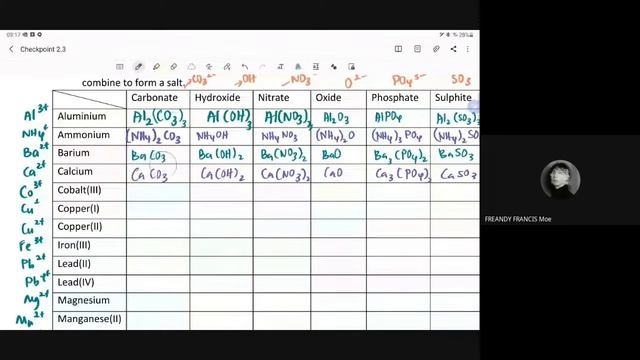 09:17
28%
Checkpoint 2.3
combine to form a salt.
CO₃²⁻ OH NO₃⁻ O²⁻ PO₄³⁻ SO₃
Carbonate Hydroxide Nitrate Oxide Phosphate Sulphite
Al³⁺ Aluminium Al₂(CO₃)₃ Al(OH)₃ Al(NO₃)₃ Al₂O₃ AlPO₄ Al₂(SO₃)
NH₄⁺ Ammonium (NH₄)₂CO₃ NH₄OH NH₄NO₃ (NH₄)₂O (NH₄)₃PO₄ (NH₄)₂SO
Ba²⁺ Barium BaCO₃ Ba(OH)₂ Ba(NO₃)₂ BaO Ba₃(PO₄)₂ BaSO₃
Ca²⁺ Calcium CaCO₃ Ca(OH)₂ Ca(NO₃)₂ CaO Ca₃(PO₄)₂ CaSO₃
Co³⁺ Cobalt(III)
Copper(I)
Cu²⁺ Copper(II)
Fe³⁺ Iron(III)
Pb²⁺ Lead(II)
Pb⁴⁺ Lead(IV)
Mg²⁺ Magnesium
Mn²⁺ Manganese(II)
FREANDY FRANCIS Moe